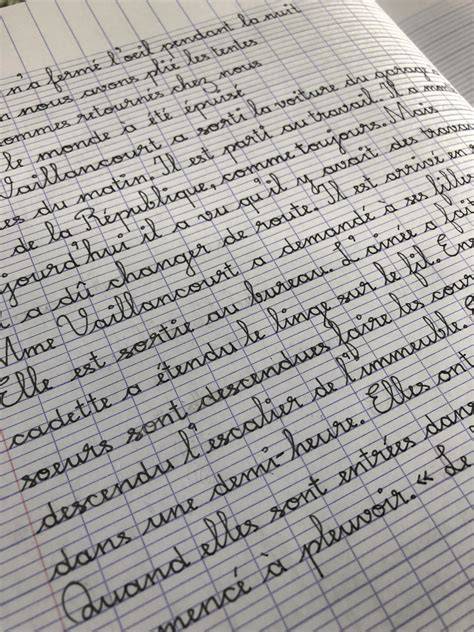 n'a fermé l'oeil pendant la nuit
nous avons plié les tentes
ommes retournés chez nous
le monde a été épuisé
Vaillancourt a sorti la voiture du garage
es du matin. Il est parti au travail. Il a
de la République, comme toujours. Mais
jourd'hui il a vu qu'il y avait des travau
a dû changer de route. Il est arrivé en
Mme Vaillancourt a demandé à ses filles
Elle est sortie au bureau. L'aînée a fai
cadette a étendu le linge sur le fil. En
soeurs sont descendues faire les cour
descendu l'escalier de l'immeuble
dans une demi-heure. Elles ont
Quand elles sont entrées dans
mencé à pleuvoir. « Le